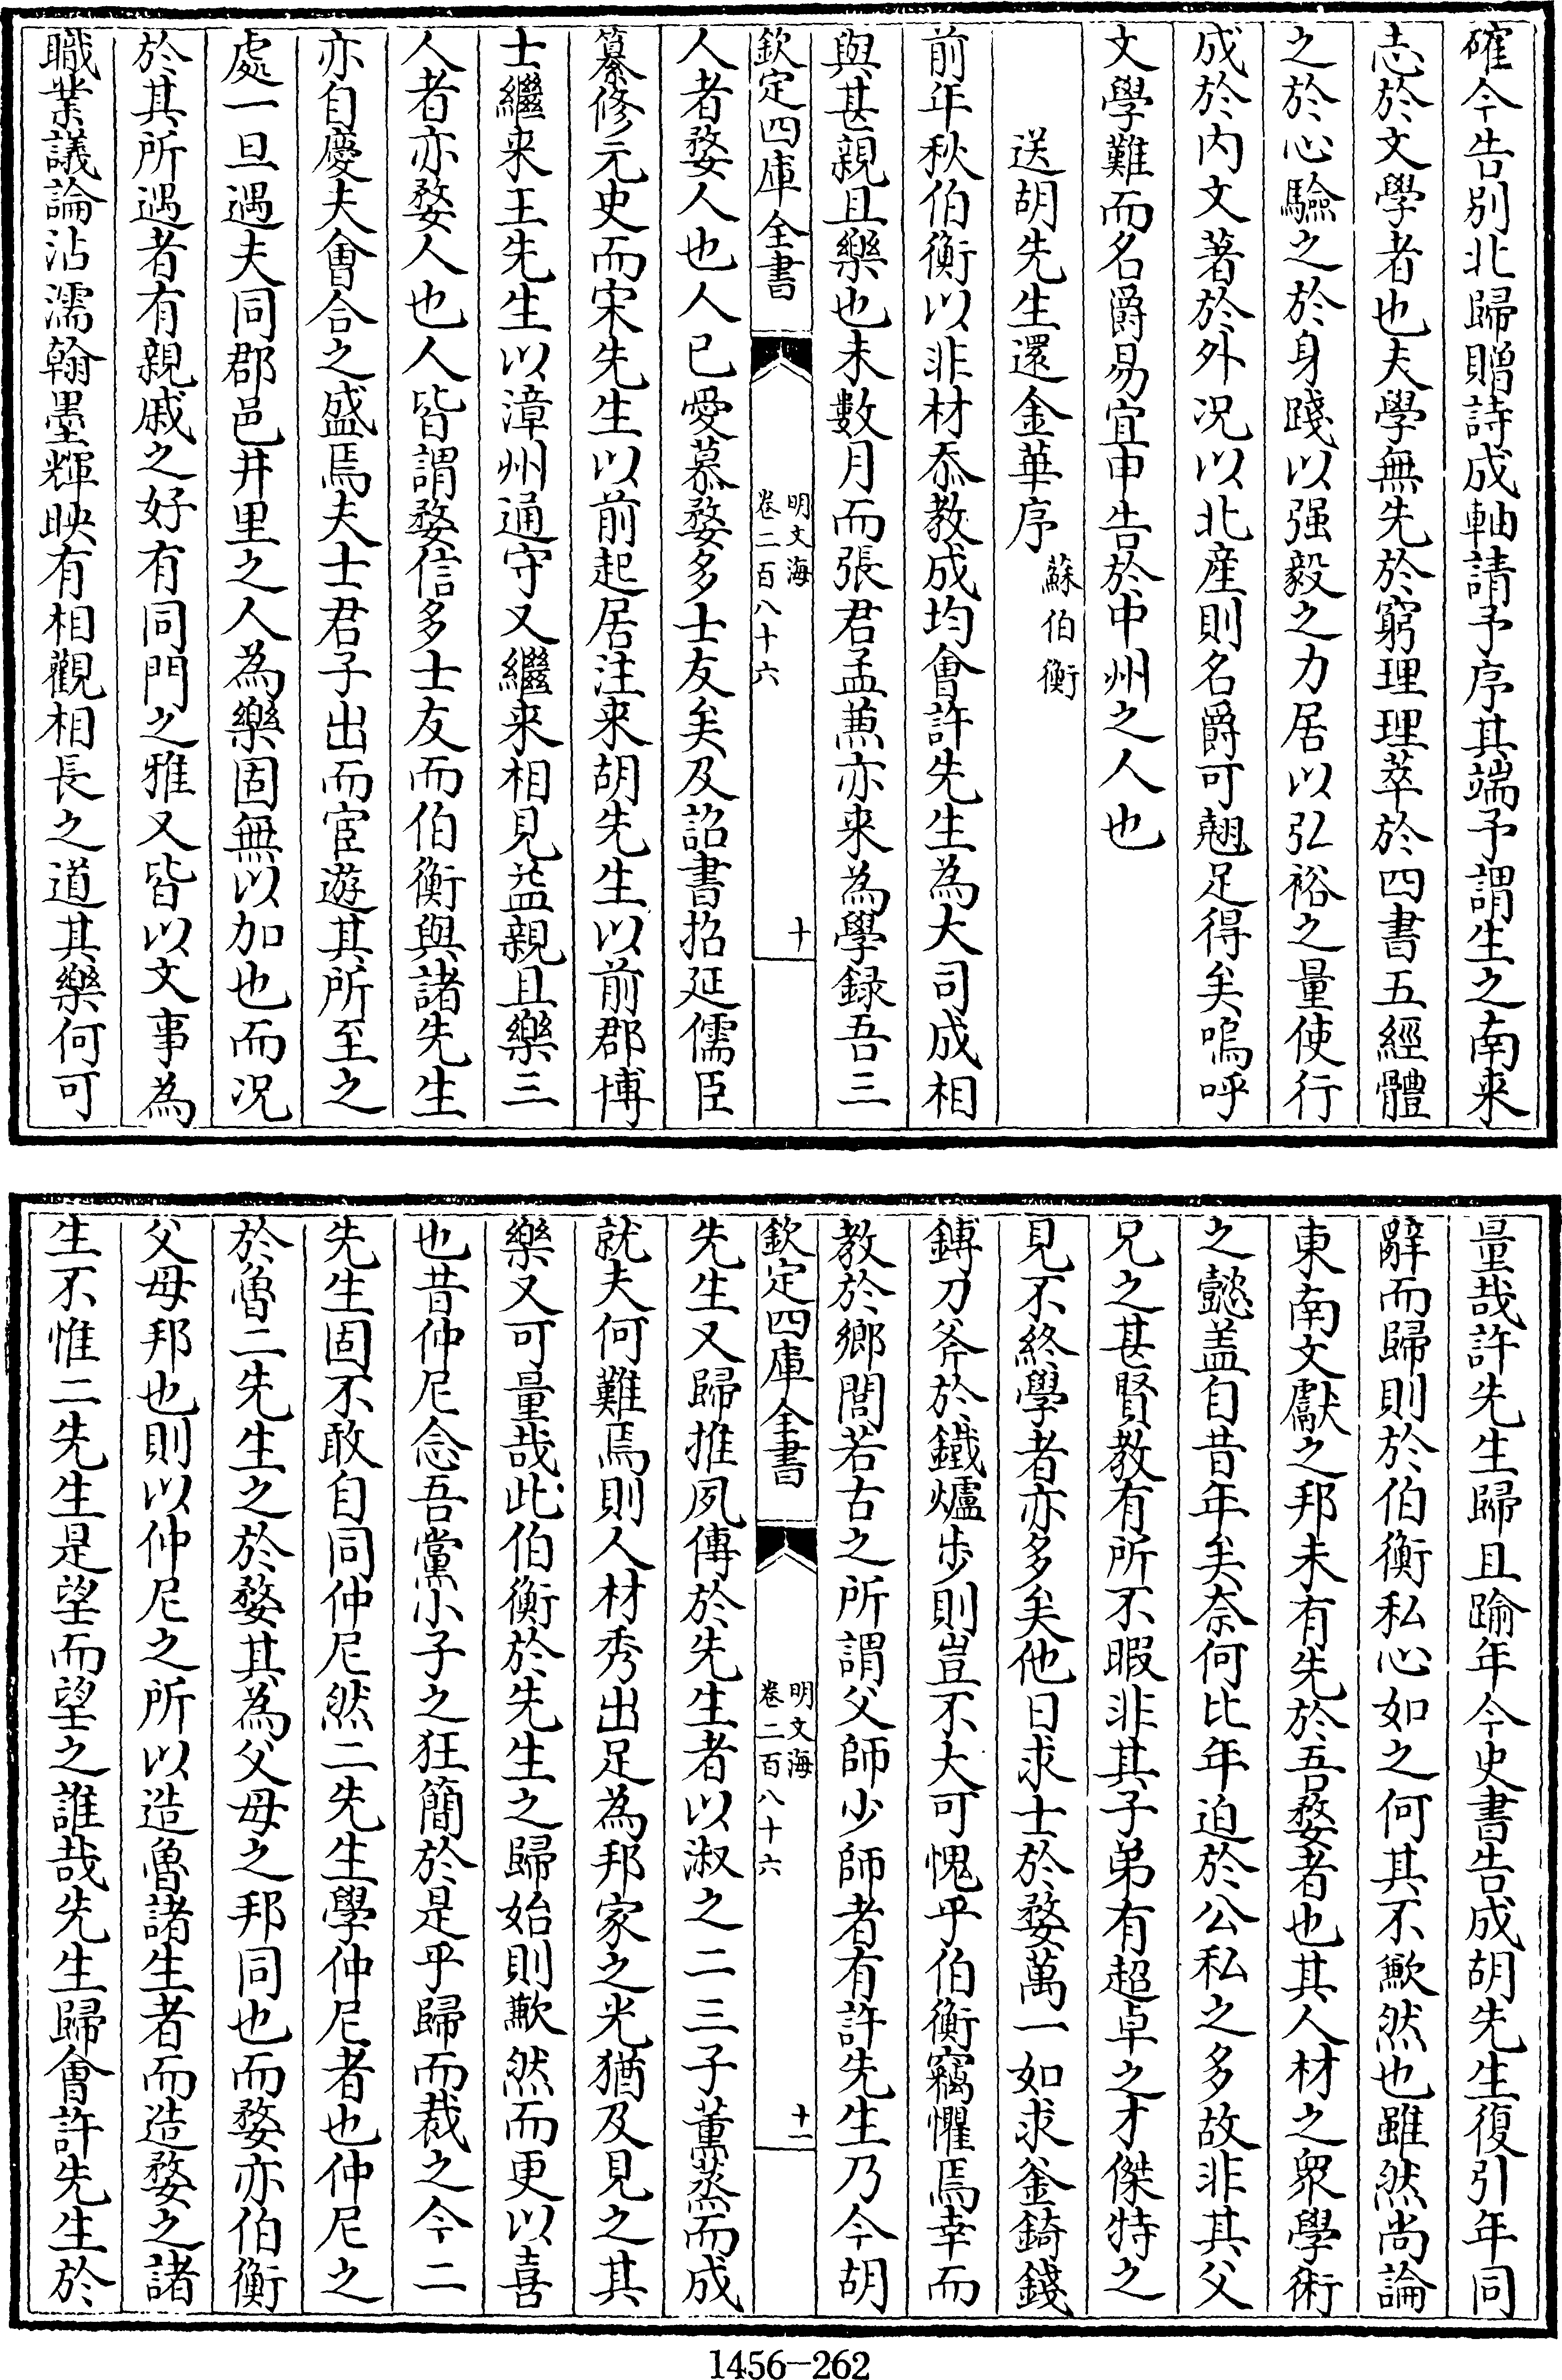 確今告別北歸贈詩成軸請予序其端予謂生之南来
志於文學者也夫學無先於窮理理萃於四書五經體
之於心驗之於身踐以强毅之力居以弘裕之量使行
成於内文著於外况以北産則名爵可翹足得矣嗚呼
文學難而名爵易宜申告於中州之人也
送胡先生還金華序
蘇伯衡
前年秋伯衡以非材忝教成均會許先生為大司成相
與甚親且樂也未數月而張君孟蕙亦来為學録吾三
欽定四庫全書
明文海
卷二百八十六
十
人者婺人也人已愛慕婺多士友矣及詔書招延儒臣
纂修元史而宋先生以前起居注来胡先生以前郡博
士繼来王先生以漳州通守又繼来相見益親且樂三
人者亦婺人也人皆謂婺信多士友而伯衡與諸先生
亦自慶夫會合之盛焉夫士君子出而宦遊其所至之
處一旦遇夫同郡邑井里之人為樂固無以加也而况
於其所遇者有親戚之好有同門之雅又皆以文事為
職業議論沾濡翰墨輝映有相觀相長之道其樂何可
量哉許先生歸且踰年今史書告成胡先生復引年同
辭而歸則於伯衡私心如之何其不歉然也雖然尚論
東南文獻之邦未有先於吾婺者也其人材之衆學術
之懿盖自昔年矣奈何比年迫於公私之多故非其父
兄之甚賢教有所不暇非其子弟有超卓之才傑特之
見不終學者亦多矣他日求士於婺萬一如求釜錡錢
鎛刀斧於鐵爐步則豈不大可愧乎伯衡竊懼焉幸而
教於鄉閭若古之所謂父師少師者有許先生乃今胡
欽定四庫全書
明文海
卷二百八十六
十一
先生又歸推夙傳於先生者以淑之二三子薫蒸而成
就夫何難焉則人材秀出足為邦家之光猶及見之其
樂又可量哉此伯衡於先生之歸始則歉然而更以喜
也昔仲尼念吾黨小子之狂簡於是乎歸而裁之今二
先生固不敢自同仲尼然二先生學仲尼者也仲尼之
於魯二先生之於婺其為父母之邦同也而婺亦伯衡
父母邦也則以仲尼之所以造魯諸生者而造婺之諸
生不惟二先生是望而望之誰哉先生歸會許先生於
1456-262